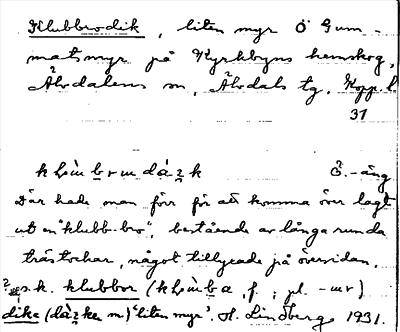 Klubbrodik, liten myr Ö Gum-
matsmyr på Kyrkbyns hemskog,
Älvdalens sn, Älvdals tg, Kopp. l
31
Ö.-äng
Där hade man förr för att komma över lagt
ut en "klubb-bro", bestående av långa runda
trästockar, något tillyxade på översidan.
s.k. klubbor (f., pl. -ur)
dike (m) 'liten myr'. H. Lindberg 1931.